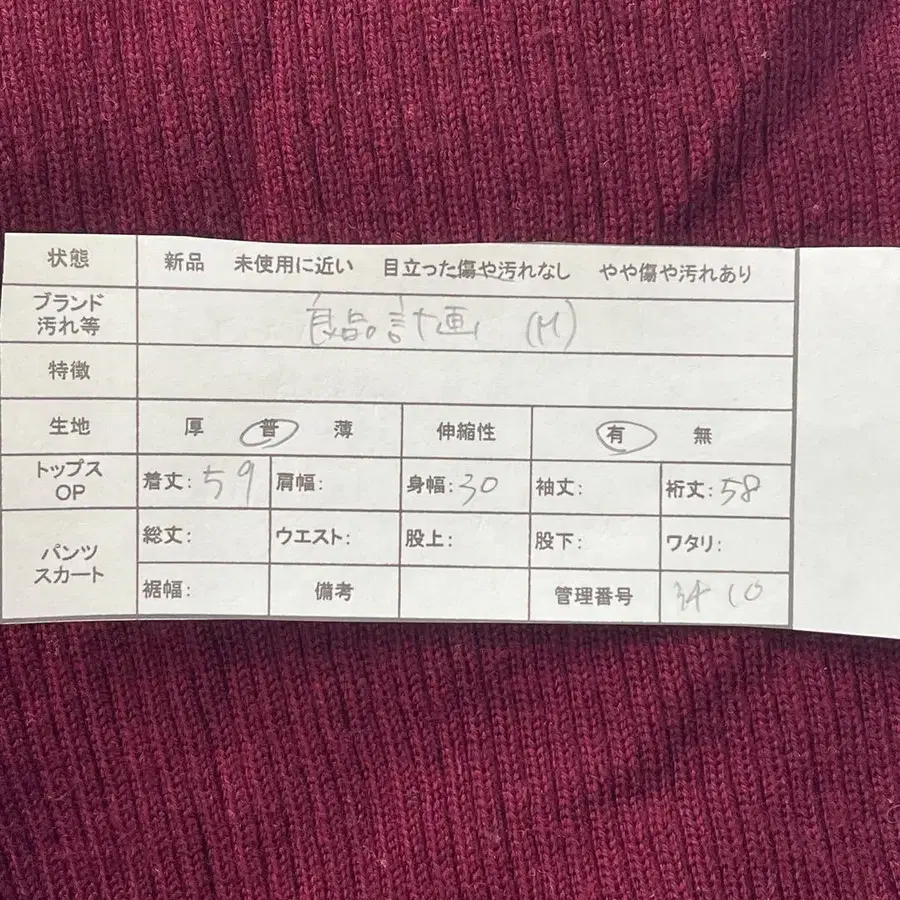 状態 新品 未使用に近い 目立った傷や汚れなし やや傷や汚れあり
ブランド
汚れ等 良品計画 (M)
特徴
生地 厚 普 薄 伸縮性 有 無
トップス
OP 着丈: 59 肩幅: 身幅: 30 袖丈: 裄丈: 58
パンツ
スカート 総丈: ウエスト: 股上: 股下: ワタリ:
裾幅: 備考 管理番号 3410